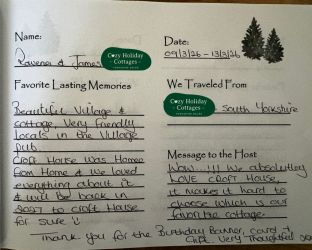 Name:
Rowena & James
Cozy Holiday
Cottages
Date:
09/3/26 - 13/3/26
Favorite Lasting Memories
Beautiful Village &
cottage. Very Friendly
locals in the Village
pub.
Croft House was Home
from Home & we loved
everything about it
& will be back in
2027 to Croft House
for sure
We Traveled From
Cozy Holiday
Cottages
South Yorkshire
Message to the Host
Wow !!! We absolutley
LOVE Croft House,
it makes it hard to
choose which is our
favorite cottage.
Thank you for the Birthday Banner, card &
Gift. Very Thoughtful